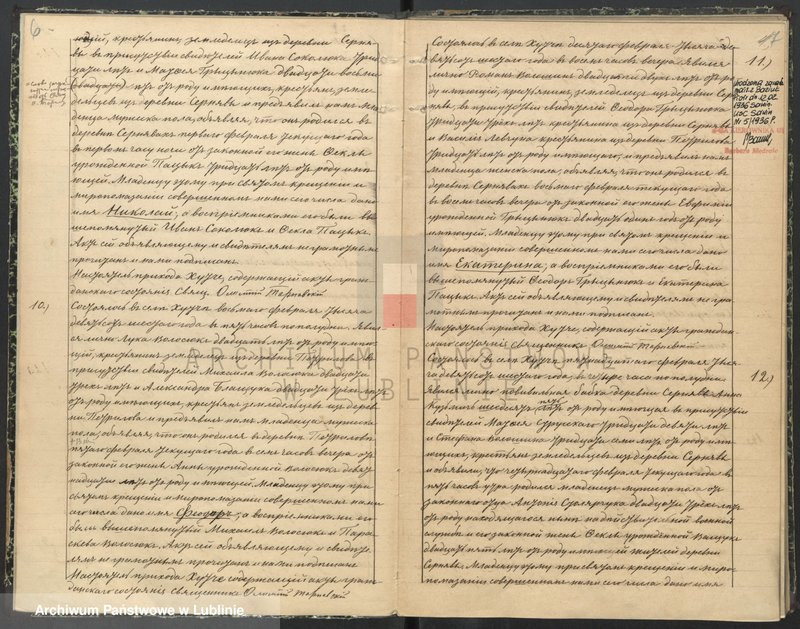 6
ющій, крестьянинъ земледелецъ изъ деревни Серня-
вы въ присутствіи свидетелей Ивана Соколюка три-
дцати летъ и Матвея Грыцынюка двадцати восьми
летъ отъ роду имеющихъ, крестьянъ земле-
дельцевъ изъ деревни Сернявы и предъявилъ намъ мла-
денца мужеска пола, объявляя, что онъ родился въ
деревне Сернявахъ перваго февраля текущаго года
въ первомъ часу ночи отъ законной его жены Феклы
урожденной Пацыкъ тридцати летъ отъ роду име-
ющей. Младенцу этому при святомъ крещеніи и
миропомазаніи совершенномъ нами сего числа дано
имя Николай, а воспріемниками его были вы-
шепомянутый Иванъ Соколюкъ и Фекла Пацыкъ.
Актъ сей объявляющему и свидетелямъ неграмотнымъ
прочитанъ и нами подписанъ.
Настоятель прихода Хутче, содержащій акты граж-
данскаго состоянія Свящ.
10.)
Состоялось въ селе Хутче восьмаго февраля тысяча
девятьсотъ шестаго года въ пять часовъ пополудни. Явил-
ся лично Лука Волосюкъ двадцати летъ отъ роду имею-
щій, крестьянинъ земледелецъ изъ деревни Петрилова въ
присутствіи свидетелей Михаила Волосюка двадцати
трехъ летъ и Александра двадцати трехъ летъ
отъ роду имеющихъ, крестьянъ земледельцевъ изъ дерев-
ни Петрилова и предъявилъ намъ младенца мужеска
пола, объявляя, что онъ родился въ деревне Петрилове
пятаго февраля текущаго года въ семь часовъ вечера отъ
законной его жены Анны урожденной Волосюкъ девят-
надцати летъ отъ роду имеющей. Младенцу этому при
святомъ крещеніи и миропомазаніи совершенномъ нами
сего числа дано имя Феодоръ, а воспріемниками его
были вышепомянутый Михаилъ Волосюкъ и Пара-
скева Волосюкъ. Актъ сей объявляющему и свидете-
лямъ неграмотнымъ прочитанъ и нами подписанъ
Настоятель прихода Хутче содержащій акты граж-
данскаго состоянія священникъ
47
11.)
Состоялось въ селе Хутче десятаго февраля тысяча де-
вятьсотъ шестаго года въ восемь часовъ вечера. Явился
лично Романъ Волошинъ двадцати двухъ летъ отъ ро-
ду имеющій, крестьянинъ земледелецъ изъ деревни Серня-
вы, въ присутствіи свидетелей Феодора Грыцынюка
тридцати трехъ летъ крестьянина изъ деревни Сернявы
и Василія Левчука крестьянина изъ деревни Петрилова
тридцати летъ отъ роду имеющаго, и предъявилъ намъ
младенца женска пола, объявляя, что онъ родился въ
деревне Сернявахъ восьмаго февраля текущаго года
въ восемь часовъ вечера отъ законной его жены Евфиміи
урожденной Грыцынюкъ двадцати одинъ годъ отъ роду
имеющей. Младенцу этому при святомъ крещеніи и
миропомазаніи совершенномъ нами сего числа дано
имя Екатерина, а воспріемниками его были
вышепомянутый Феодоръ Грыцынюкъ и Екатерина
Пацыкъ. Актъ сей объявляющему и свидетелямъ негра-
мотнымъ прочитанъ и нами подписанъ.
Настоятель прихода Хутче, содержащій акты граждан-
скаго состоянія священникъ
12.)
Состоялось въ селе Хутче пятнадцатаго февраля тыся-
ча девятьсотъ шестаго года, въ четыре часа по полудни.
Явилась лично повивальная бабка деревни Сернявы Анна
шестьдесятъ летъ отъ роду имеющая въ присутствіи
свидетелей Матвея тридцати девяти летъ
и Стефана Волошина тридцати семи летъ отъ роду име-
ющихъ, крестьянъ земледельцевъ изъ деревни Сернявы
и объявила, что четырнадцатаго февраля текущаго года въ
пять часовъ утра родился младенецъ мужеска пола отъ
законнаго отца Антонія Столярчука двадцати трехъ летъ
отъ роду находящагося ныне на действительной военной
службе и его законной жены Феклы урожденной
двадцати пяти летъ отъ роду имеющей жителей деревни
Сернявы. Младенцу этому при святомъ крещеніи и миро-
помазаніи совершенномъ нами сего числа дано имя
12.02.
1936
Nr 5/1936 r.
ARCHIWUM PAŃSTWOWE
W LUBLINIE
Archiwum Państwowe w Lublinie